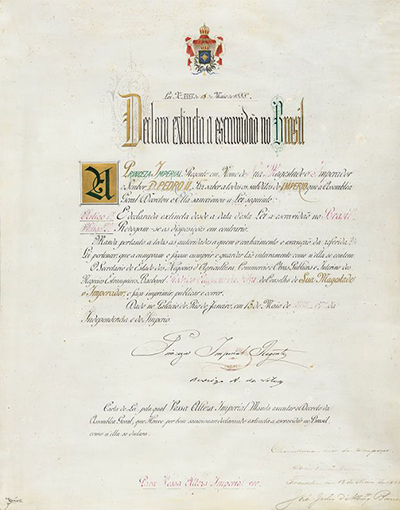 Lei N.º 3353 de 13 de Maio de 1888.
Declara extincta a escravidão no Brasil
A PRINCEZA IMPERIAL Regente em Nome de Sua Magestade o Imperador
o Senhor D. PEDRO II, Faz saber a todos os subditos do IMPERIO que a Assembléa
Geral Decretou e Ella sanccionou a Lei seguinte:
Artigo 1.º É declarada extincta desde a data desta Lei a escravidão no Brazil
Artigo 2.º Revogam-se as disposições em contrario.
Manda portanto a todas as autoridades a quem o conhecimento e execução da referida
Lei pertencer, que a cumpram e façam cumprir e guardar tão inteiramente como n'ella se contem
O Secretario de Estado dos Negocios d'Agricultura, Commercio e Obras Publicas e Interino dos
Negocios Estrangeiros, Bacharel Rodrigo Augusto da Silva do Conselho de Sua Magestade
o Imperador, o faça imprimir, publicar e correr.
Dado no Palacio do Rio de Janeiro, em 13 de Maio de 1888 67.º da
Independencia e do Imperio.
Princeza Imperial Regente
Rodrigo A. da Silva
Carta de Lei, pela qual Vossa Alteza Imperial Manda executar o Decreto da
Assembléa Geral, que Houve por bem sanccionar declarando extincta a escravidão no Brasil,
como n'ella se declara.
Para Vossa Alteza Imperial ver.